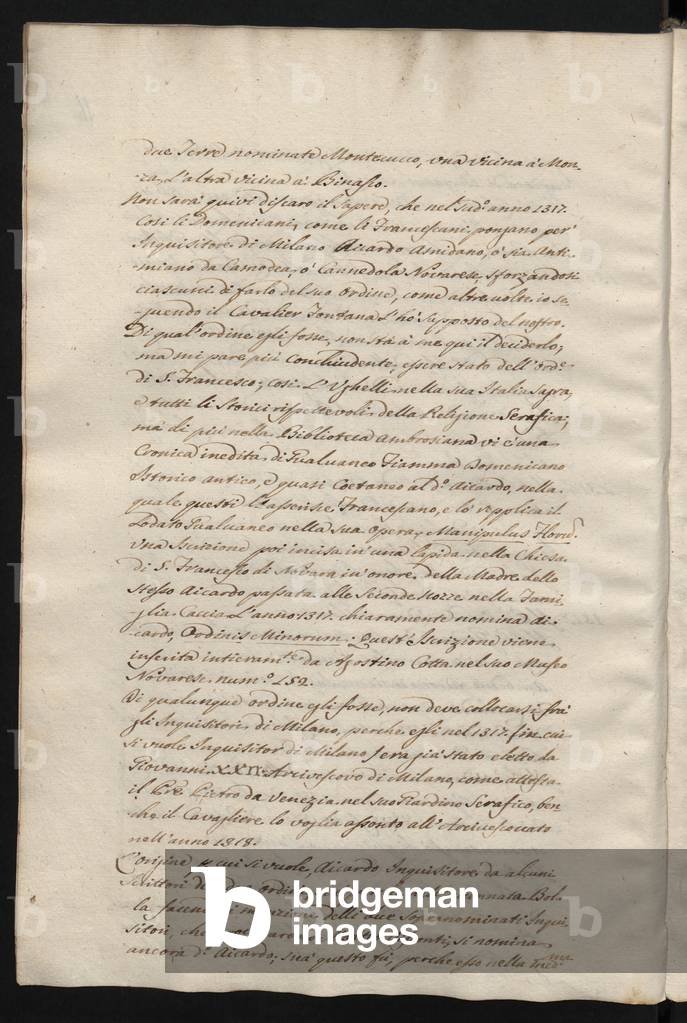 due Terre nominate Montecucco, una vicina à Mon-
za, l'altra vicina à Binasco.
Non sarà quivi discaro il sapere, che nel sud.º anno 1317.
Così li Domenicani, come li Francescani pongano per
Inquisitore di Milano Aicardo Amidano, ò sia Anti-
miano da Camodea, ò Cannedola Novarese, sforzandosi
ciascuni di farlo del suo ordine, come altre volte io se-
-guendo il Cavalier Fontana l'hò supposto del nostro.
Di qual'ordine egli fosse, non stà à me qui il deciderlo;
ma mi pare più concludente, essere stato dell'ord.e
di S. Francesco; così l'Ughelli nella sua Italia sagra,
e tutti li storici rispettevoli della Religione Serafica;
mà di più nella Biblioteca Ambrosiana vi è una
Cronica inedita di Gualvaneo Fiamma Domenicano
Istorico antico, e quasi Coetaneo al d.º Aicardo, nella
quale questi l'asserisce Francescano, e lo replica il
Lodato Gualvaneo nella sua opera, Manipulus Florū.
Una Iscrizione poi incisa in una lapida nella Chiesa
di S. Francesco di Novara in onore della Madre dello
stesso Aicardo passata alle seconde Nozze nella Fami-
-glia Caccia l'anno 1317. chiaramente nomina Ai-
cardo, Ordinis Minorum. Quest'Iscrizione viene
inserita intieram.te da Agostino Cotta nel suo Museo
Novarese num.º 452.
Di qualunque ordine egli fosse, non deve collocarsi frà
gli Inquisitori di Milano, perche egli nel 1317. fin cui
si vuole Inquisitor di Milano, era già stato eletto da
Giovanni XXII. Arcivescovo di Milano, come attesta
il Pre Pietro da Venezia nel suo Giardino Serafico, ben
che il Cavagliere lo voglia assonto all'Arcivescovato
nell'anno 1318.
L'origine cui si vuole, Aicardo Inquisitore da alcuni
scrittori
Bol-
la sopranominati Inqui-
sitori, si nomina
ancora d.º Aicardo; mà questo fù, perche esso nella med.ma
b bridgeman
images